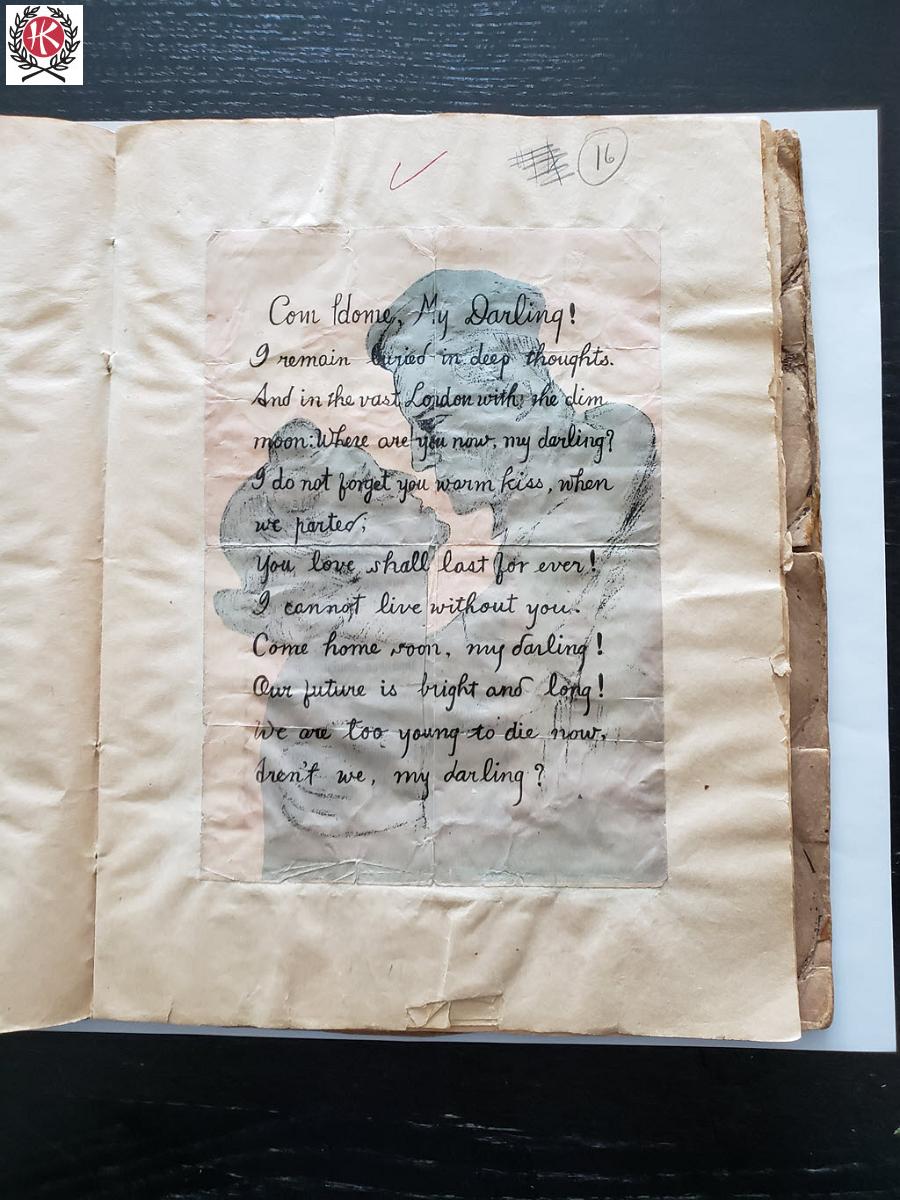 HK
16
Com Home, My Darling!
I remain buried in deep thoughts.
And in the vast London with the dim
moon: Where are you now, my darling?
I do not forget you warm kiss, when
we parted;
You love shall last for ever!
I cannot live without you.
Come home soon, my darling!
Our future is bright and long!
We are too young to die now,
Aren't we, my darling?